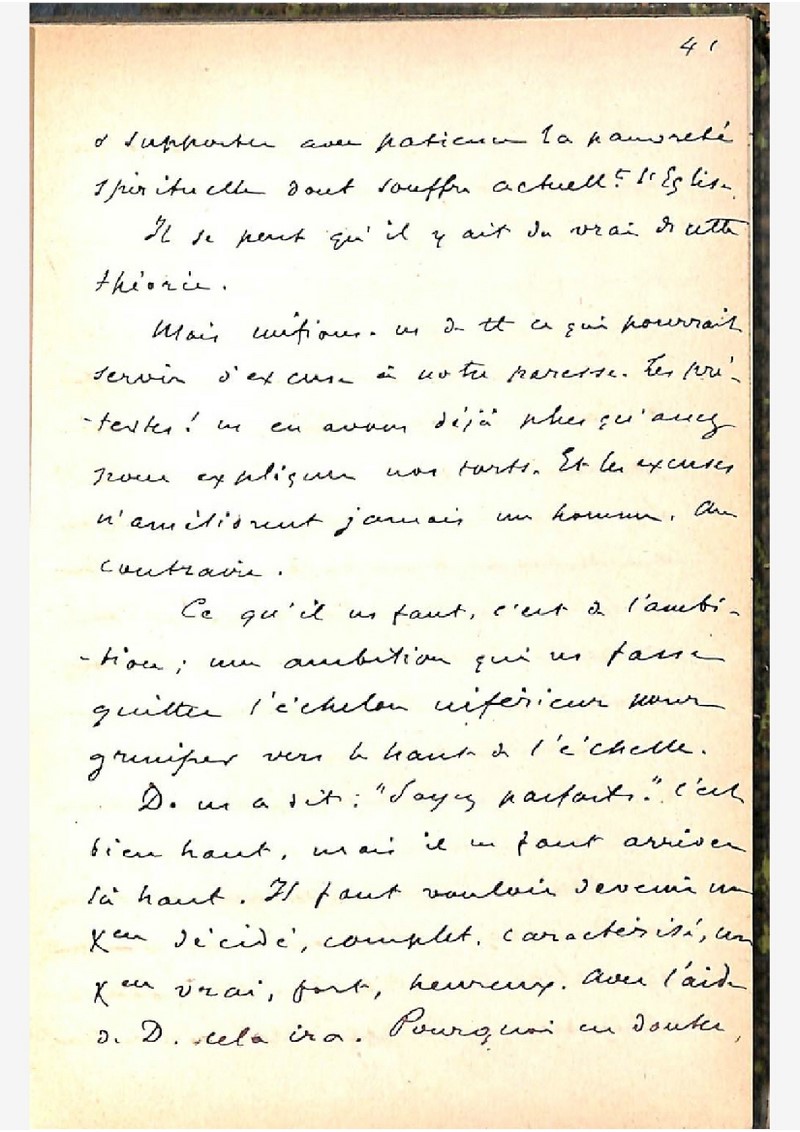 41
& supporter avec patience la pauvreté
spirituelle dont souffre actuellt l'Eglise.
Il se peut qu'il y ait du vrai ds cette
théorie.
Mais méfions-ns de tt ce qui pourrait
servir d'excuse à notre paresse. Les pré-
-textes! ns en avons déjà plus qu'assez
pour expliquer nos torts. Et les excuses
n'améliorent jamais un homme. Au
contraire.
Ce qu'il ns faut, c'est de l'ambi-
-tion; une ambition qui ns fasse
quitter l'échelon inférieur pour
grimper vers le haut de l'échelle.
D. ns a dit: "Soyez parfaits." C'est
bien haut, mais il ns faut arriver
là haut. Il faut vouloir devenir un
Xen décidé, complet, caractérisé, un
Xen vrai, fort, heureux. Avec l'aide
de D. cela ira. Pourquoi en douter,